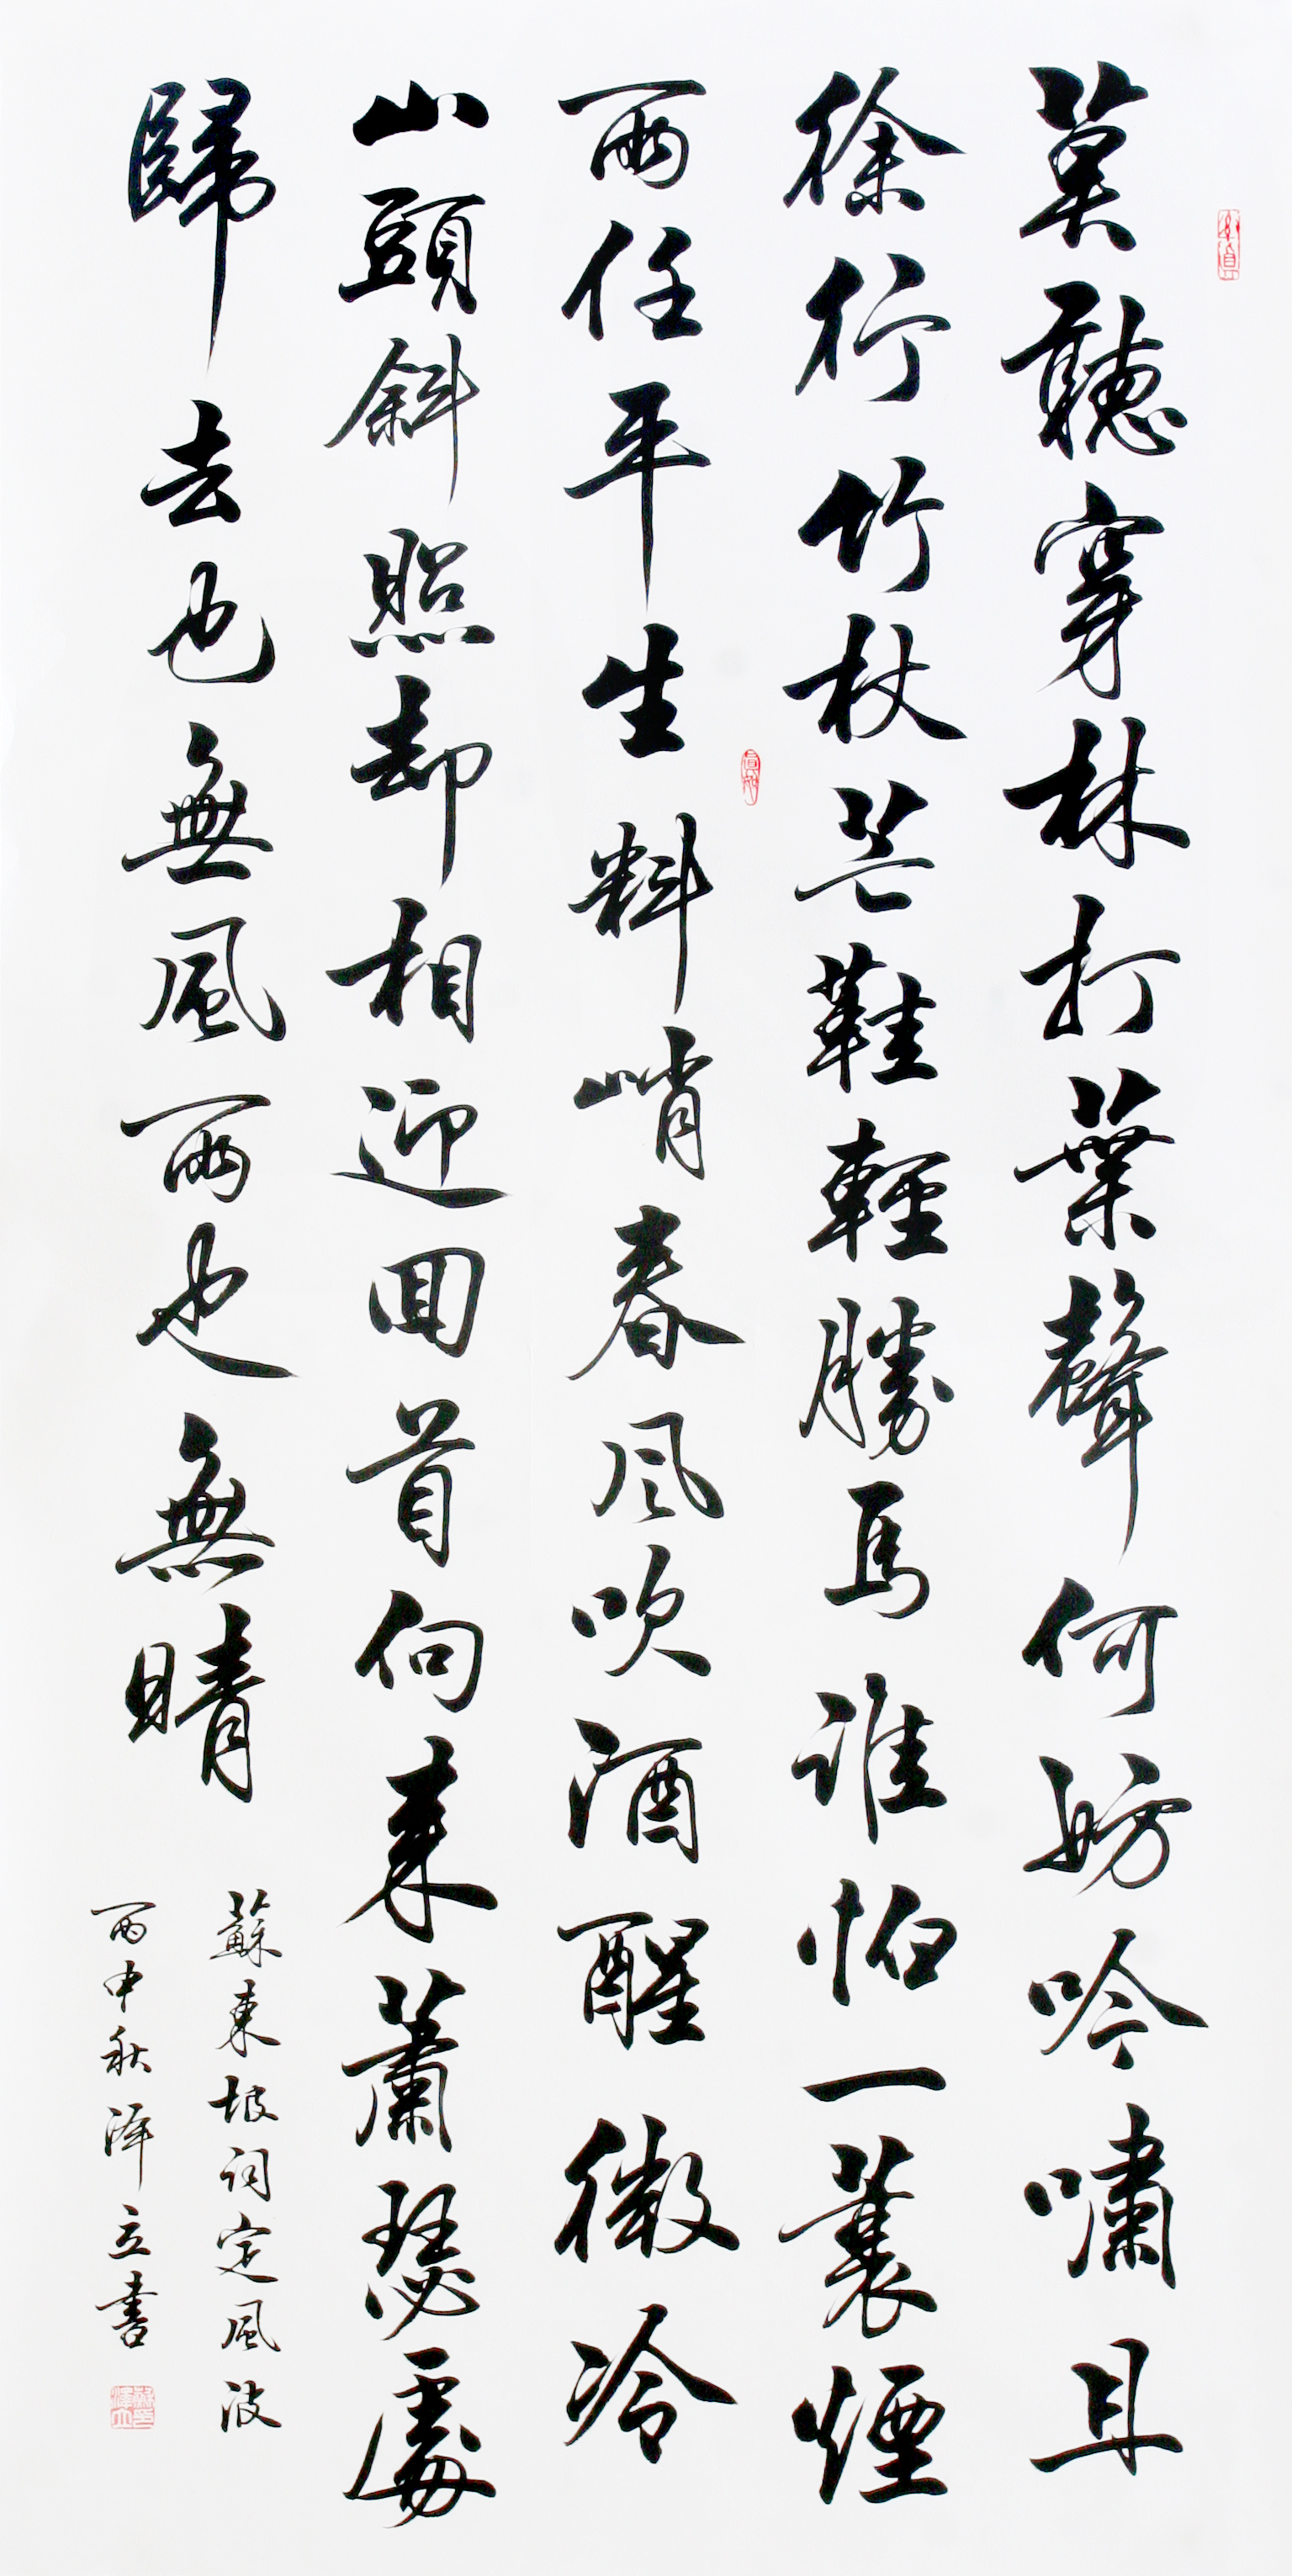 莫聽穿林打葉聲何妨吟嘯且
徐行竹杖芒鞋輕勝馬誰怕一蓑煙
雨任平生料峭春風吹酒醒微冷
山頭斜照却相迎回首向來蕭瑟處
歸去也無風雨也無晴
蘇東坡詞定風波
丙申秋泽立書